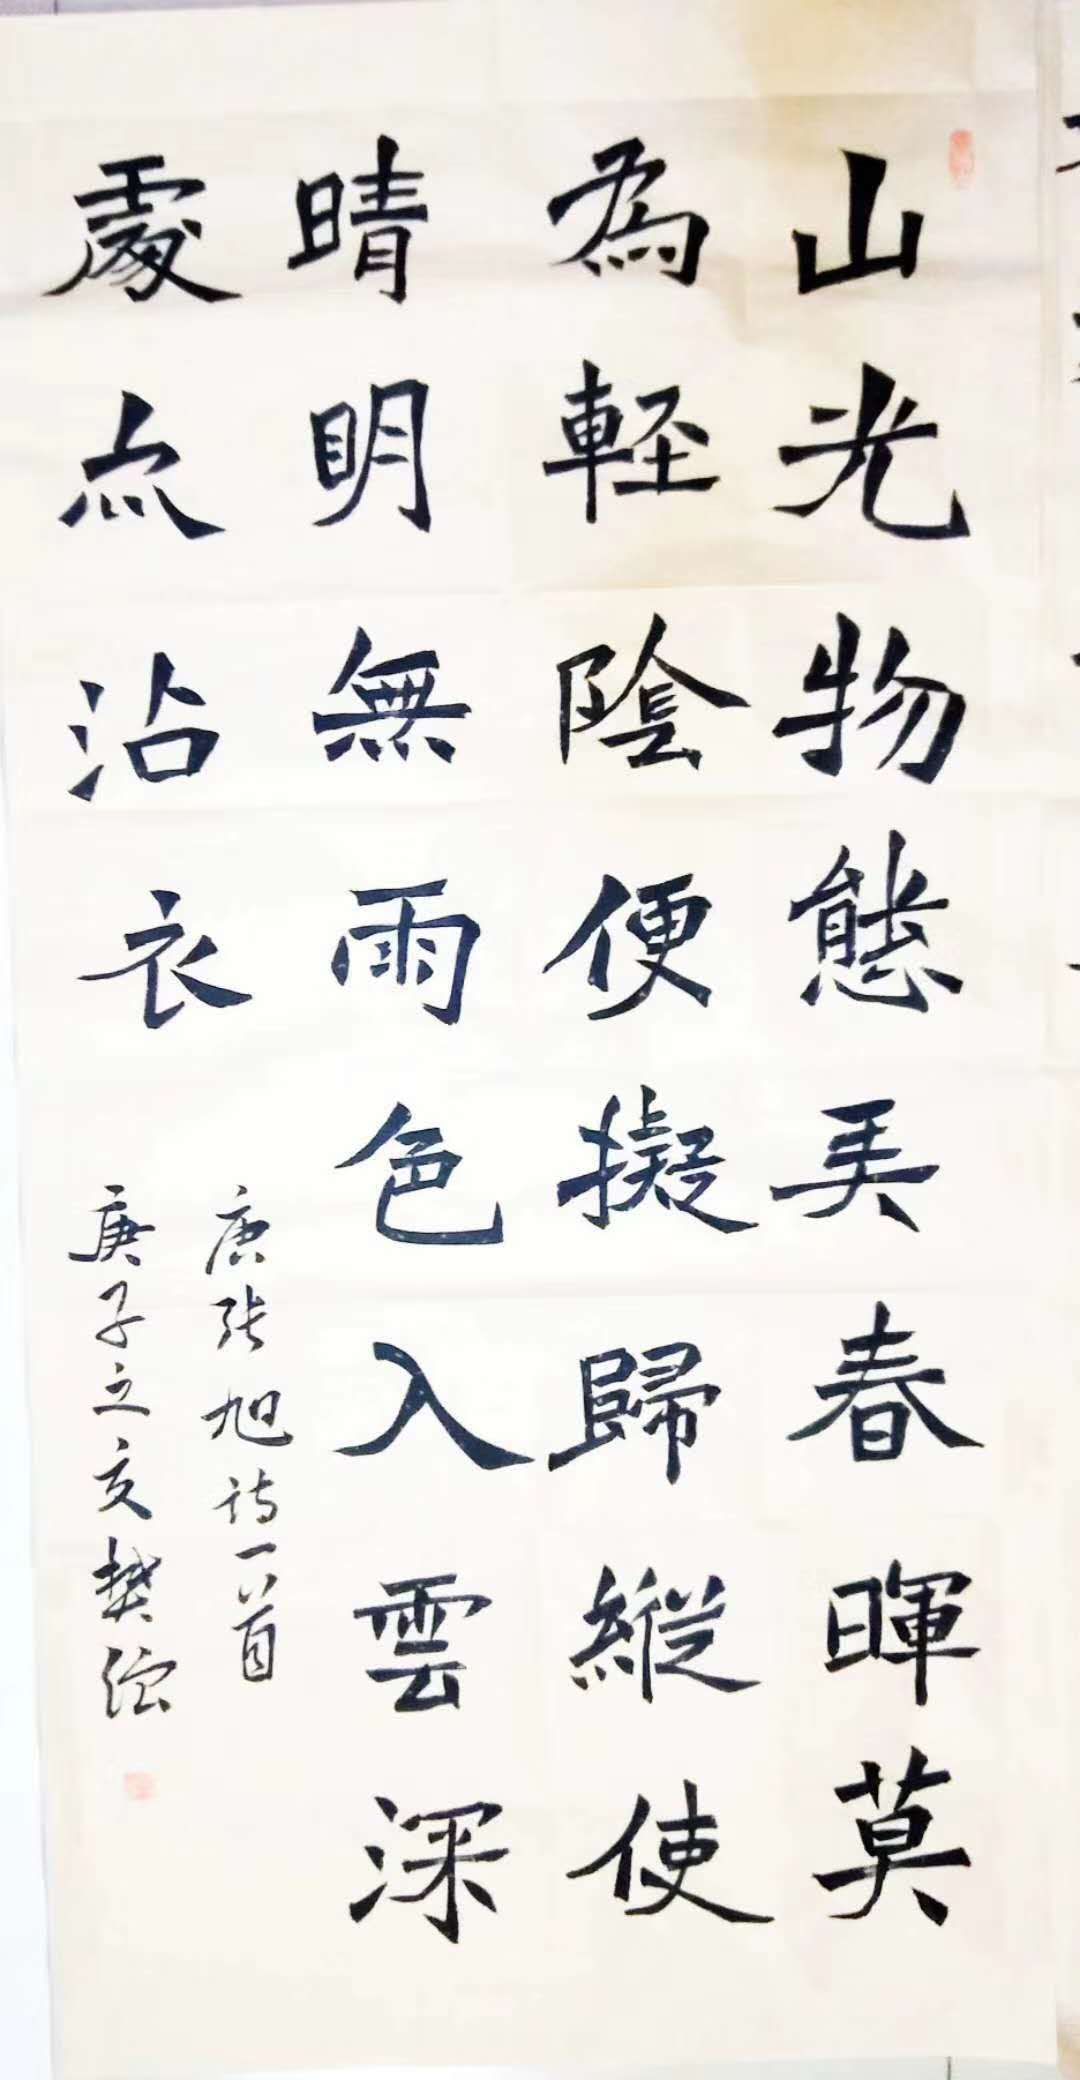 山光物態弄春暉莫
為軽陰便擬歸縱使
晴明無雨色入雲深
處点沾衣
唐张旭诗一首
庚子之夏樊